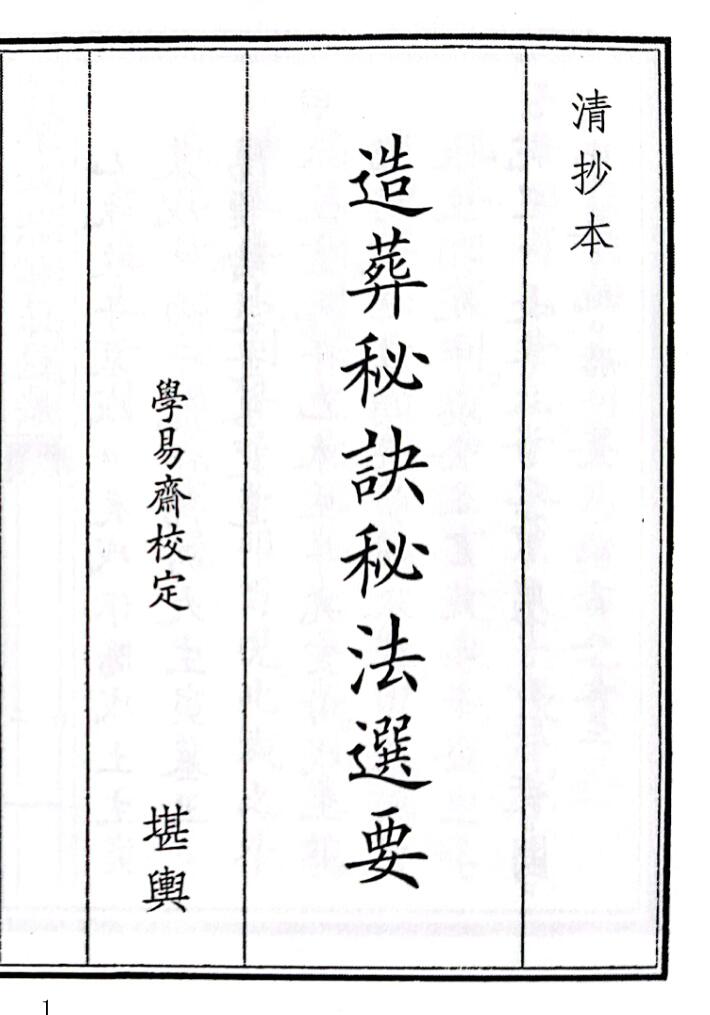 清抄本
造葬秘訣秘法選要
學易齋校定
堪輿
1